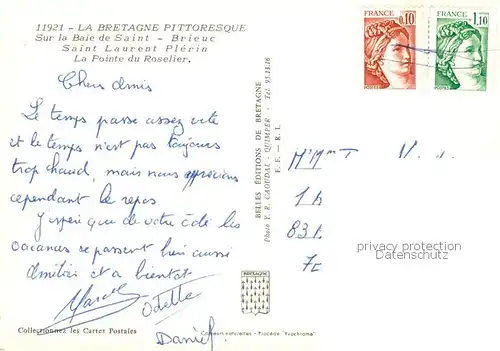 11921 - LA BRETAGNE PITTORESQUE
Sur la Baie de Saint - Brieuc
Saint Laurent Plérin
La Pointe du Roselier.
FRANCE
0,10
POSTES
FRANCE
1,10
POSTES
Chers Amis
Le temps passe assez vite
et le temps n'est pas toujours
trop chaud, mais nous apprécions
cependant le repos
J'espère que de votre côté les
vacances se passent bien aussi
Amitiés et a bientôt
Marcel
Odette
Daniel
BELLES ÉDITIONS DE BRETAGNE
Photo Y. R. CAOUDAL - QUIMPER - Tél. 95.13.16
E. F. - R. I.
83
privacy protection
Datenschutz
BRETAGNE
Collectionnez les Cartes Postales
Couleurs naturelles - Procédé "Yvochrome"